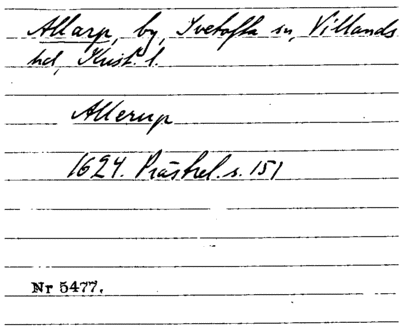 Allarp, by, Ivetofta sn, Villands
hd, Krist. l.
Allerup
1624. Prästrel. s. 151
Nr 5477.